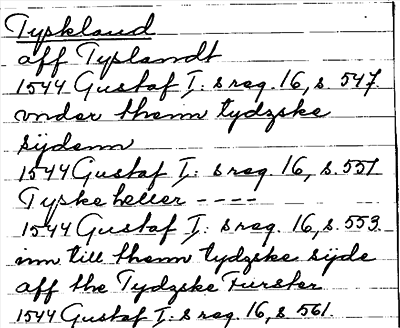 Tyskland
aff Tyslandt
1544 Gustaf I: s reg. 16, s. 547.
vnder them tydzske
sijdenn
1544 Gustaf I: s reg. 16, s. 551
Tyske heller ----
1544 Gustaf I: s reg. 16, s. 553.
inn till them tydzske sijde
aff the Tydzske Furster
1544 Gustaf I: s reg. 16, s 561.